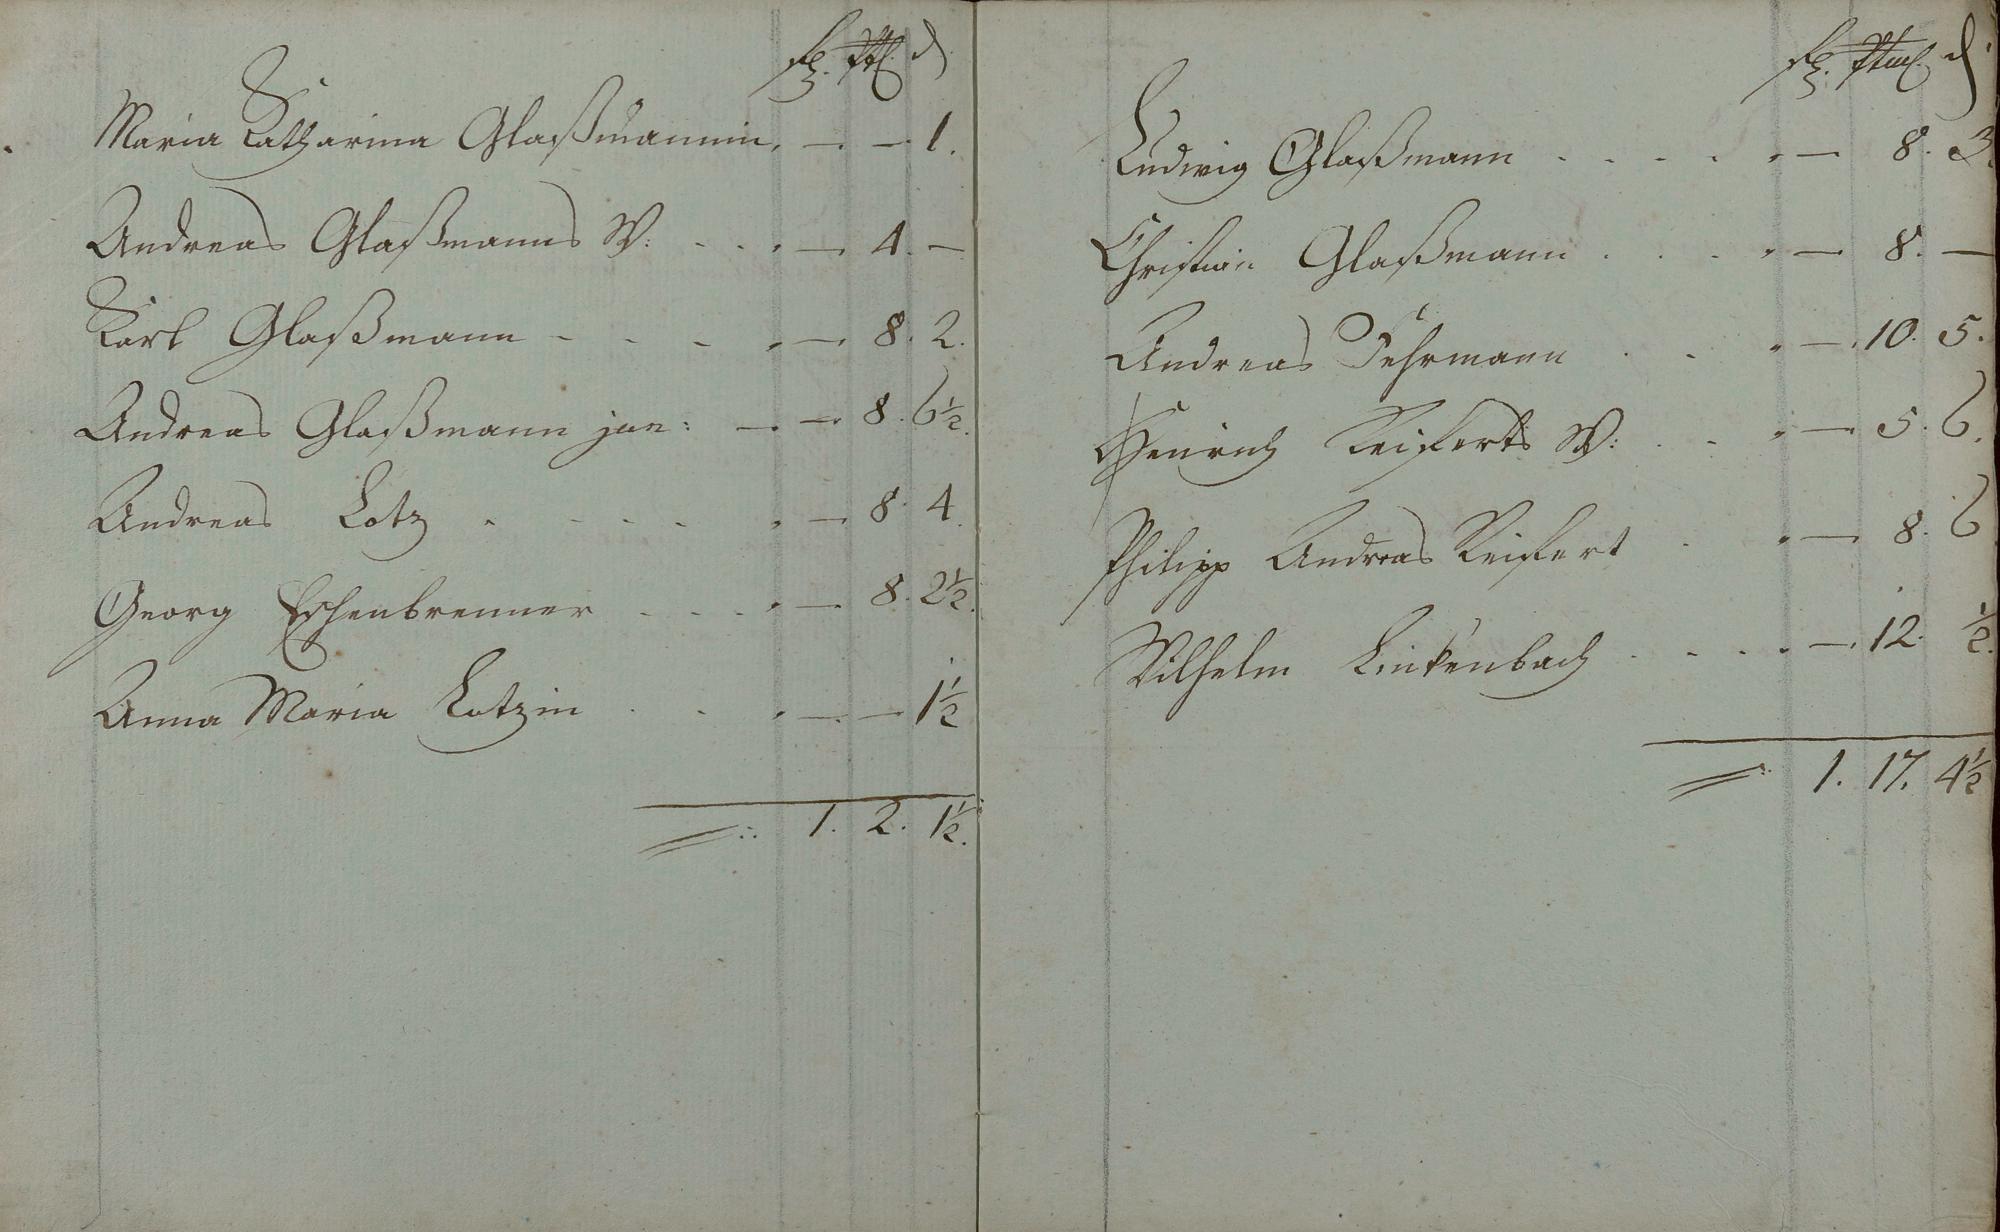 Maria Katharina Glaßmannin. — — 1.
Andreas Glaßmanns W: . . . — 4. —
Karl Glaßmann - - - . — 8. 2.
Andreas Glaßmann jun: — — 8. 6½.
Andreas Lotz . . . . . — 8. 4.
Georg Eschenbrenner . . . . — 8. 2½.
Anna Maria Lotzin . . . — — 1½
1. 2. 1½.
Ludwig Glaßmann . . . . . — 8. 3.
Christian Glaßmann . . . . — 8. —
Andreas Fehrmann . . . — 10. 5.
Henrich Reifferts W: . . . — 5. 6.
Philipp Andreas Reiffert . . — 8. 6
Wilhelm Linkenbach . . . . — 12. ½.
1. 17. 4½